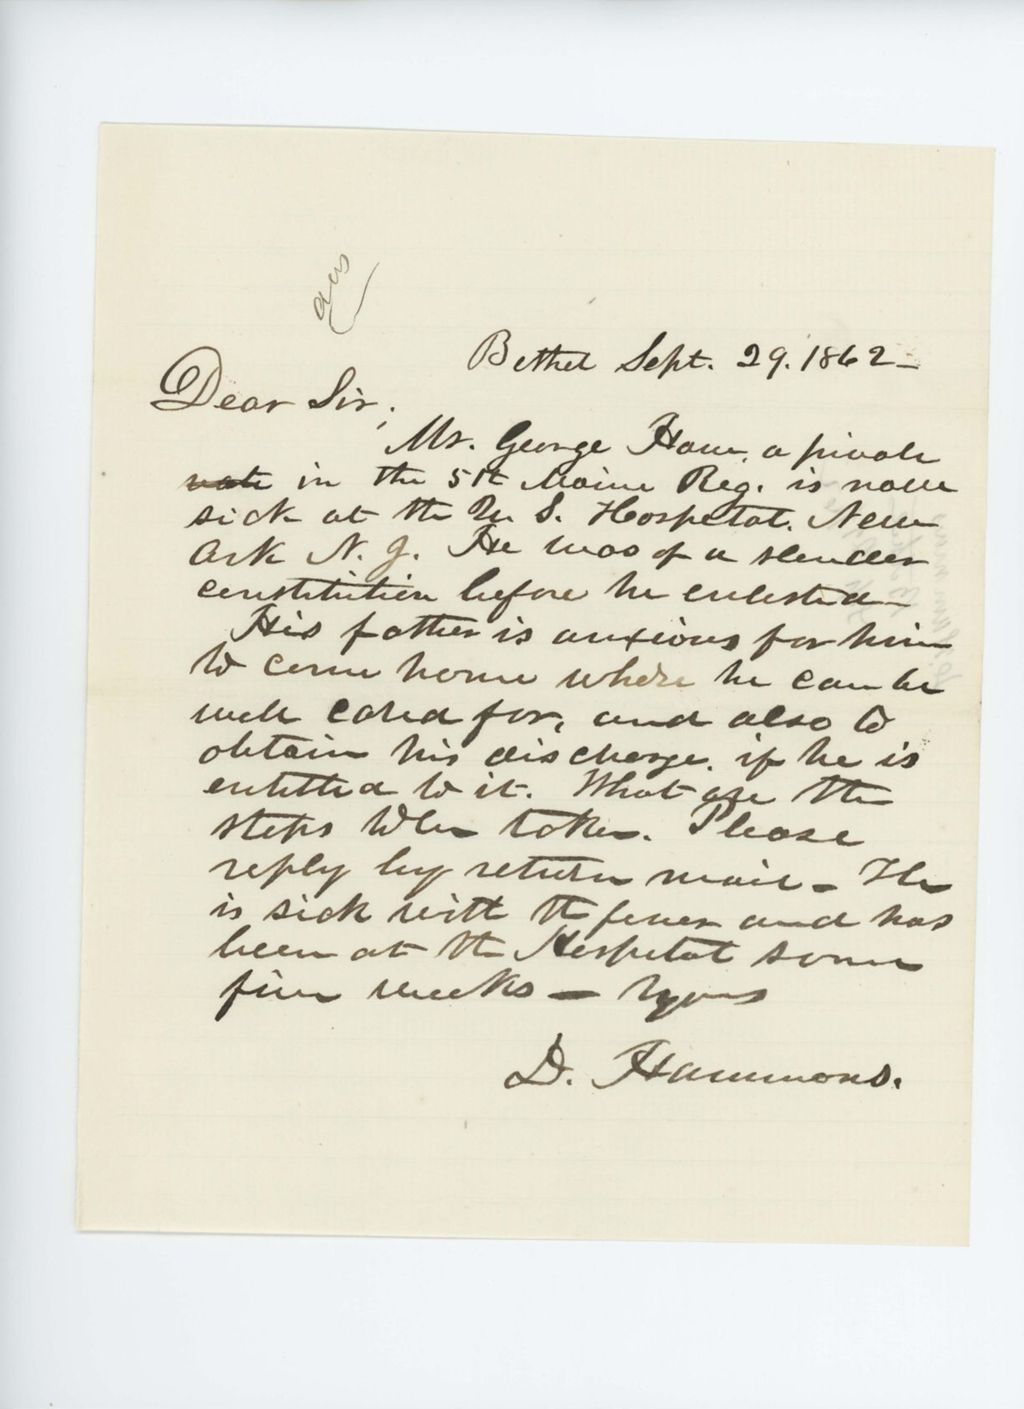 ans
Bethel Sept. 29. 1862-
Dear Sir,
Mr. George Howe, a private
vate in the 5th Maine Reg. is now
sick at the U. S. Hospital. New
Ark N. J. He was of a slender
constitution before he enlisted
His father is anxious for him
to come home where he can be
well cared for, and also to
obtain his discharge, if he is
entitled to it. What are the
steps to be taken. Please
reply by return mail - He
is sick with the fever and has
been at the Hospital some
five weeks - Yours
D. Hammons.